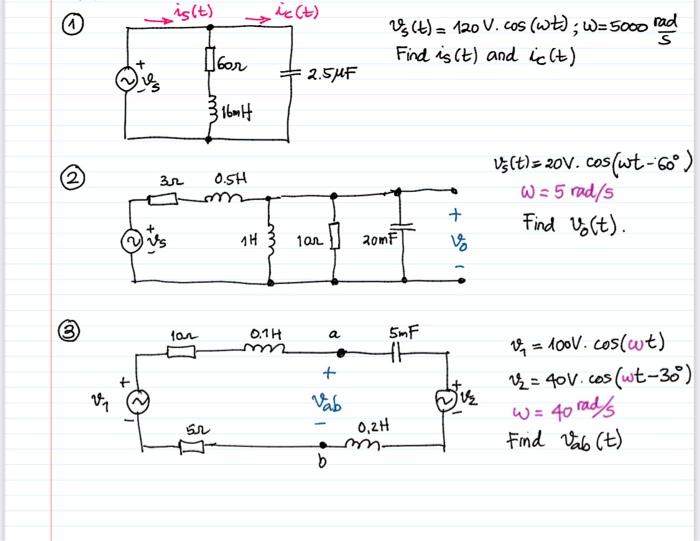 ① is(t) ic(t)
60Ω
+ vs -
2.5µF
16mH
vs(t) = 120 V. cos (ωt) ; ω=5000 rad/s
Find is(t) and ic(t)
②
3Ω 0.5H
+ vs -
1H 10Ω 20mF
+ vo -
vs(t) = 20V. cos(ωt-60°)
ω = 5 rad/s
Find vo(t).
③
10Ω 0.1H a 5mF
v1 + -
+ vab -
+ v2 -
5Ω 0,2H
b
v1 = 100V. cos(ωt)
v2 = 40V. cos(ωt-30°)
ω = 40 rad/s
Find vab(t)